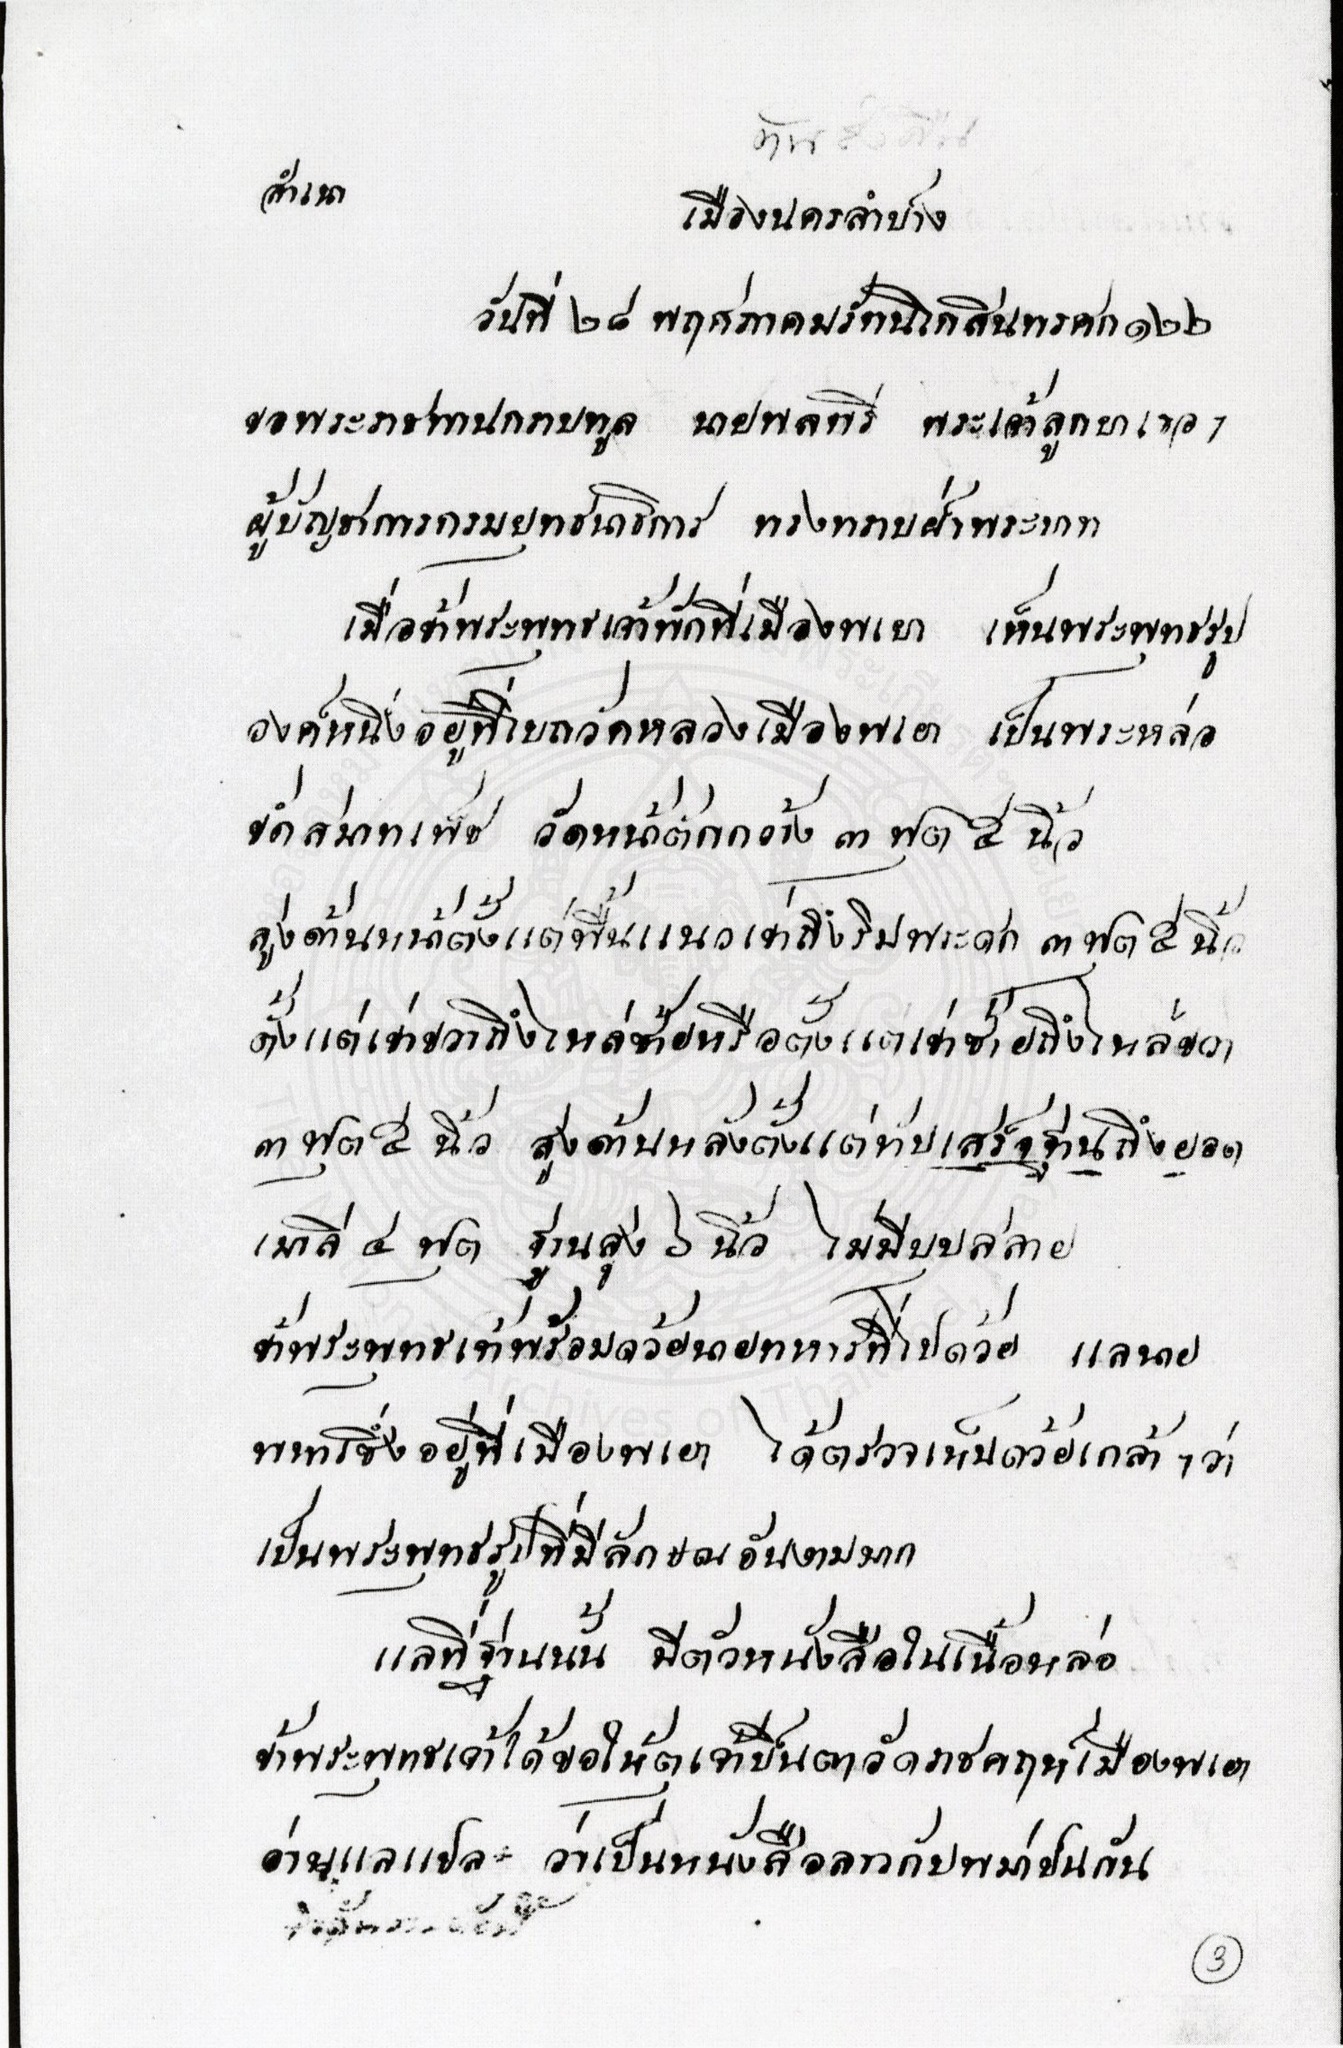 สำเนา
เมืองนครลำปาง
วันที่ ๒๘ พฤศภาคมรัตนโกสินทรศก ๑๒๒
ขอพระราชทานกราบทูล นายพลตรี พระเจ้าลูกยาเธอฯ
ผู้บัญชาการกรมยุทธนาธิการ ทรงทราบฝ่าพระบาท
เมื่อข้าพระพุทธเจ้าพักที่เมืองพเยา เห็นพระพุทธรูป
องค์หนึ่งอยู่ที่โบถวัดหลวงเมืองพเยา เป็นพระหล่อ
ขัดสมาทเพ็ช วัดหน้าตักกว้าง ๓ ฟุต ๕ นิ้ว
สูงด้านหน้าตั้งแต่พื้นแนวเข่าถึงริมพระศก ๓ ฟุต ๕ นิ้ว
ตั้งแต่เข่าขวาถึงไหล่ซ้ายหรือตั้งแต่เข่าซ้ายถึงไหล่ขวา
๓ ฟุต ๕ นิ้ว สูงด้านหลังตั้งแต่ทับเสร็จฐานถึงยอด
เมาลี ๔ ฟุต ฐานสูง ๖ นิ้ว ไม่มีบุบสลาย
ข้าพระพุทธเจ้าพร้อมด้วยนายทหารที่ไปด้วย แลนาย
ทหารซึ่งอยู่ที่เมืองพเยา ได้ตรวจเห็นด้วยเกล้าฯ ว่า
เป็นพระพุทธรูปที่มีลักษณอันงามมาก
แลที่ฐานนั้น มีตัวหนังสือในเนื้อหล่อ
ข้าพระพุทธเจ้าได้ขอให้ตุเจ้าปินตาวัดราชคฤห์เมืองพเยา
อ่านแลแปล ว่าเป็นหนังสือลาวกับพม่าปนกัน
3